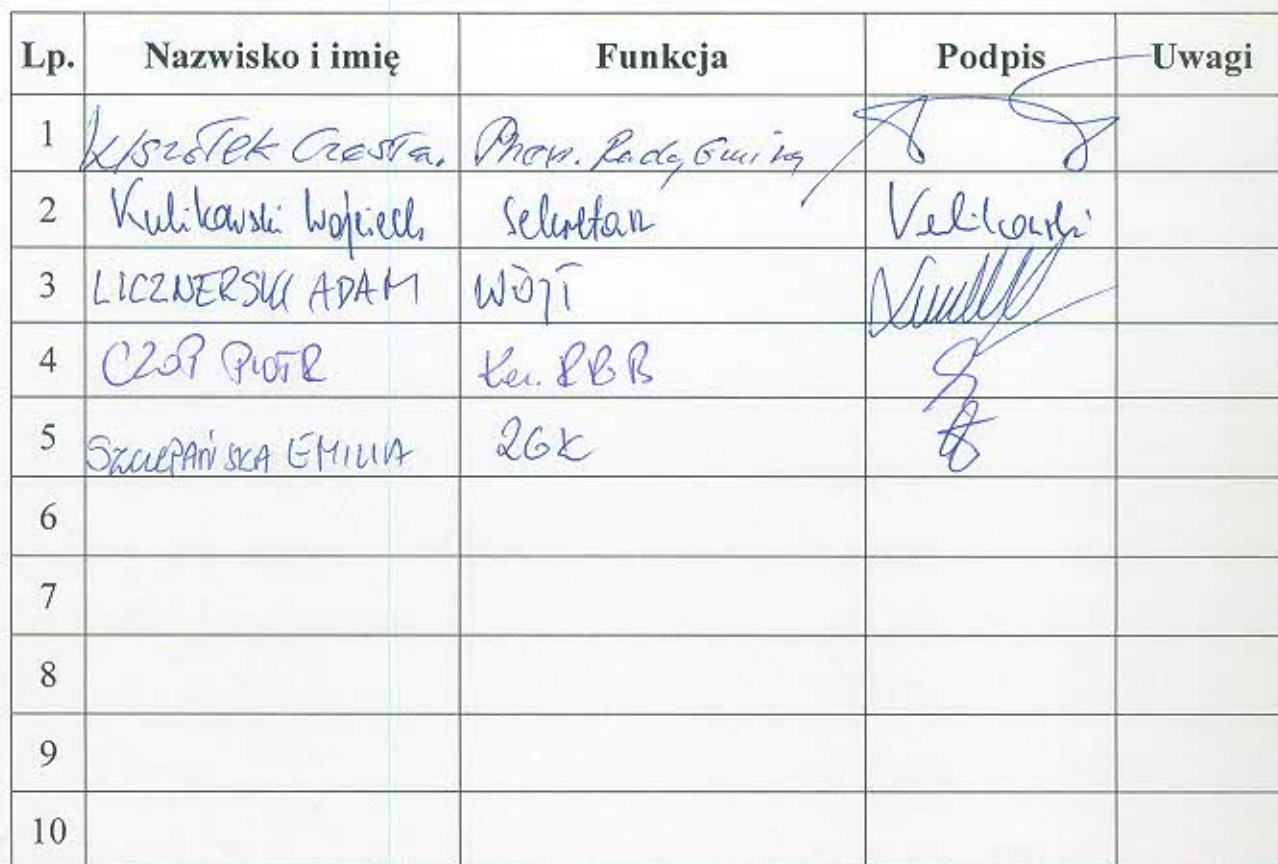 Lp. Nazwisko i imię Funkcja Podpis Uwagi
1 Przew. Rady Gminy
2 Kulikowski Wojciech Sekretarz Kulikowski
3 LICZNERSKI ADAM WÓJT
4 CZOP PIOTR Kier. RBB
5 SZCZEPAŃSKA EMILIA ZGK
6
7
8
9
10